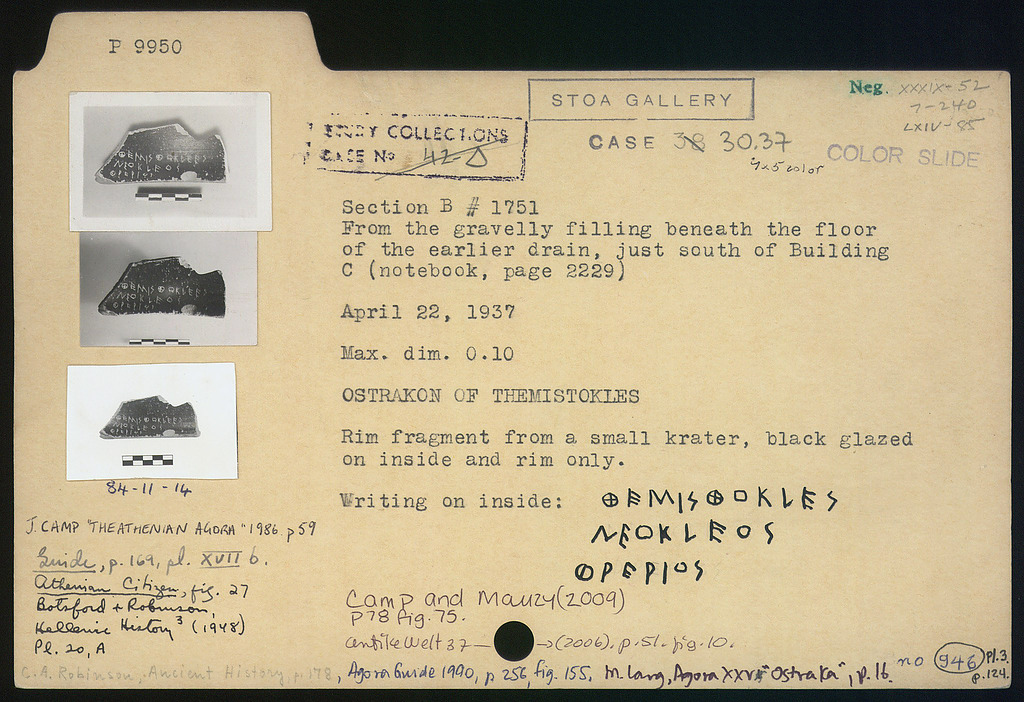 P 9950
Neg. XXXIX-52
7-240
LXIV-85
STOA GALLERY
STUDY COLLECTIONS
CASE No 42
CASE 38 30.37
4x5 color
COLOR SLIDE
Section B # 1751
From the gravelly filling beneath the floor
of the earlier drain, just south of Building
C (notebook, page 2229)
April 22, 1937
Max. dim. 0.10
OSTRAKON OF THEMISTOKLES
Rim fragment from a small krater, black glazed
on inside and rim only.
Writing on inside: ΘEMISΘOKLES
NEOKLEOS
ΦPEPIOS
84-11-14
J. CAMP "THE ATHENIAN AGORA" 1986 p 59
Guide, p. 169, pl. XVII b.
Athenian Citizen, fig. 27
Botsford + Robinson,
Hellenic History³ (1948)
Pl. 20, A
Camp and Mauzy (2009)
P 78 fig. 75.
Antike Welt 37 (2006). p. 51. fig. 10.
C.A. Robinson, Ancient History, p. 178, Agora Guide 1990, p 256, fig. 155. M. Lang, Agora XXV "Ostraka", p. 16. no 946 Pl. 3.
p. 124.